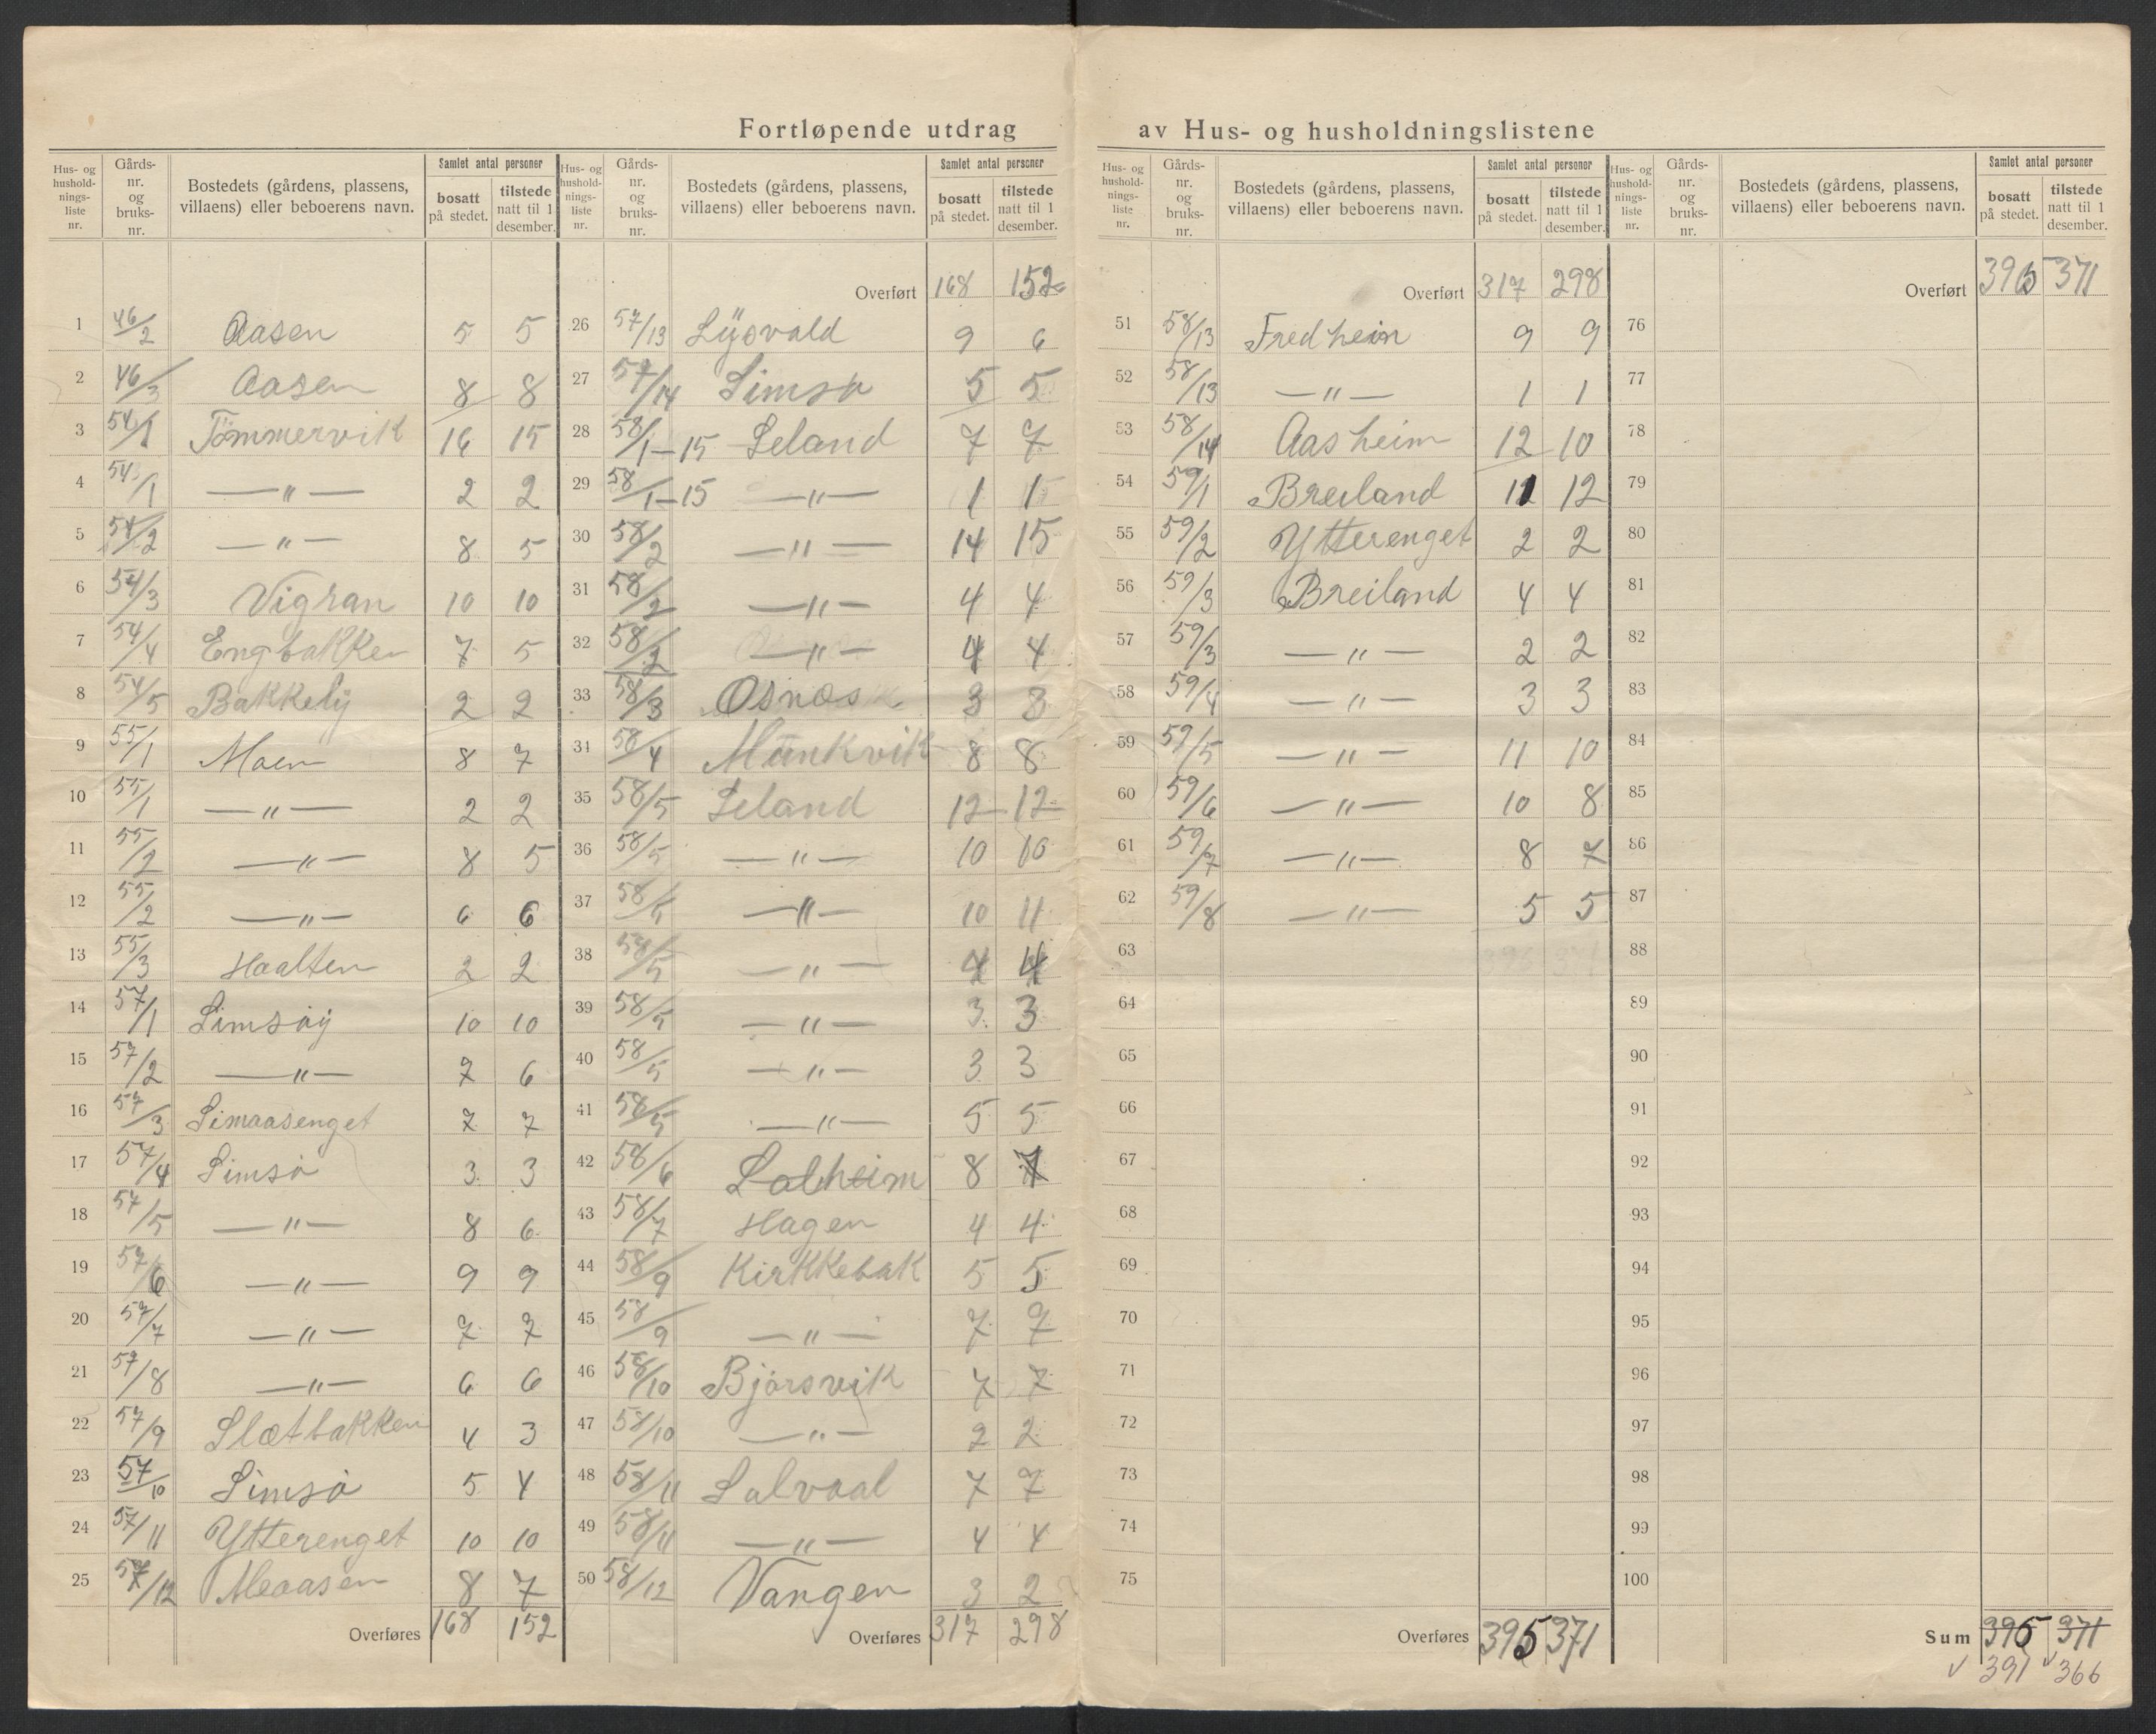 Fortløpende utdrag av Hus- og husholdningslistene
Hus- og husholdnings-liste nr. | Gårds-nr. og bruks-nr. | Bostedets (gårdens, plassens, villaens) eller beboerens navn. | Samlet antal personer bosatt på stedet. | tilstede natt til 1 desember.
1 46/2 Aasen 5 5
2 46/3 Aasen 8 8
3 54/1 Tömmervik 16 15
4 54/1 —"— 2 2
5 54/2 —"— 8 5
6 54/3 Vigran 10 10
7 54/4 Engbakken 7 5
8 54/5 Bakkelÿ 2 2
9 55/1 Moen 8 7
10 55/1 —"— 2 2
11 55/2 —"— 8 5
12 55/2 —"— 6 6
13 55/3 Haalten 2 2
14 57/1 Simsöÿ 10 10
15 57/2 —"— 7 6
16 57/3 Simaasenget 7 7
17 57/4 Simsö 3 3
18 57/5 —"— 8 6
19 57/6 —"— 9 9
20 57/7 —"— 7 7
21 57/8 —"— 6 6
22 57/9 Slætbakken 4 3
23 57/10 Simsö 5 4
24 57/11 Ytterenget 10 10
25 57/12 Meaasen 8 7
Overføres 168 152
Hus- og husholdnings-liste nr. | Gårds-nr. og bruks-nr. | Bostedets (gårdens, plassens, villaens) eller beboerens navn. | Samlet antal personer bosatt på stedet. | tilstede natt til 1 desember.
Overført 168 152
26 57/13 Lÿsvold 9 6
27 57/14 Simsö 5 5
28 58/1—15 Leland 7 7
29 58/1—15 —"— 1 1
30 58/2 —"— 14 15
31 58/2 —"— 4 4
32 58/2 —"— 4 4
33 58/3 Osnes 3 3
34 58/4 Munkvik 8 8
35 58/5 Leland 12 12
36 58/5 —"— 10 10
37 58/5 —"— 10 11
38 58/5 —"— 4 4
39 58/5 —"— 3 3
40 58/5 —"— 3 3
41 58/5 —"— 5 5
42 58/6 Solheim 8 7
43 58/7 Hagen 4 4
44 58/9 Kirkkebak 5 5
45 58/9 —"— 7 7
46 58/10 Björsvik 7 7
47 58/10 —"— 2 2
48 58/11 Solvoal 7 7
49 58/11 —"— 4 4
50 58/12 Vangen 3 2
Overføres 317 298
Hus- og husholdnings-liste nr. | Gårds-nr. og bruks-nr. | Bostedets (gårdens, plassens, villaens) eller beboerens navn. | Samlet antal personer bosatt på stedet. | tilstede natt til 1 desember.
Overført 317 298
51 58/13 Fredheim 9 9
52 58/13 —"— 1 1
53 58/14 Aasheim 12 10
54 59/1 Breiland 11 12
55 59/2 Ytterenget 2 2
56 59/3 Breiland 4 4
57 59/3 —"— 2 2
58 59/4 —"— 3 3
59 59/5 —"— 11 10
60 59/6 —"— 10 8
61 59/7 —"— 8 7
62 59/8 —"— 5 5
63
64
65
66
67
68
69
70
71
72
73
74
75
Overføres 395 371
Hus- og husholdnings-liste nr. | Gårds-nr. og bruks-nr. | Bostedets (gårdens, plassens, villaens) eller beboerens navn. | Samlet antal personer bosatt på stedet. | tilstede natt til 1 desember.
Overført 395 371
76
77
78
79
80
81
82
83
84
85
86
87
88
89
90
91
92
93
94
95
96
97
98
99
100
Sum 395 371
✓ 391 ✓ 366